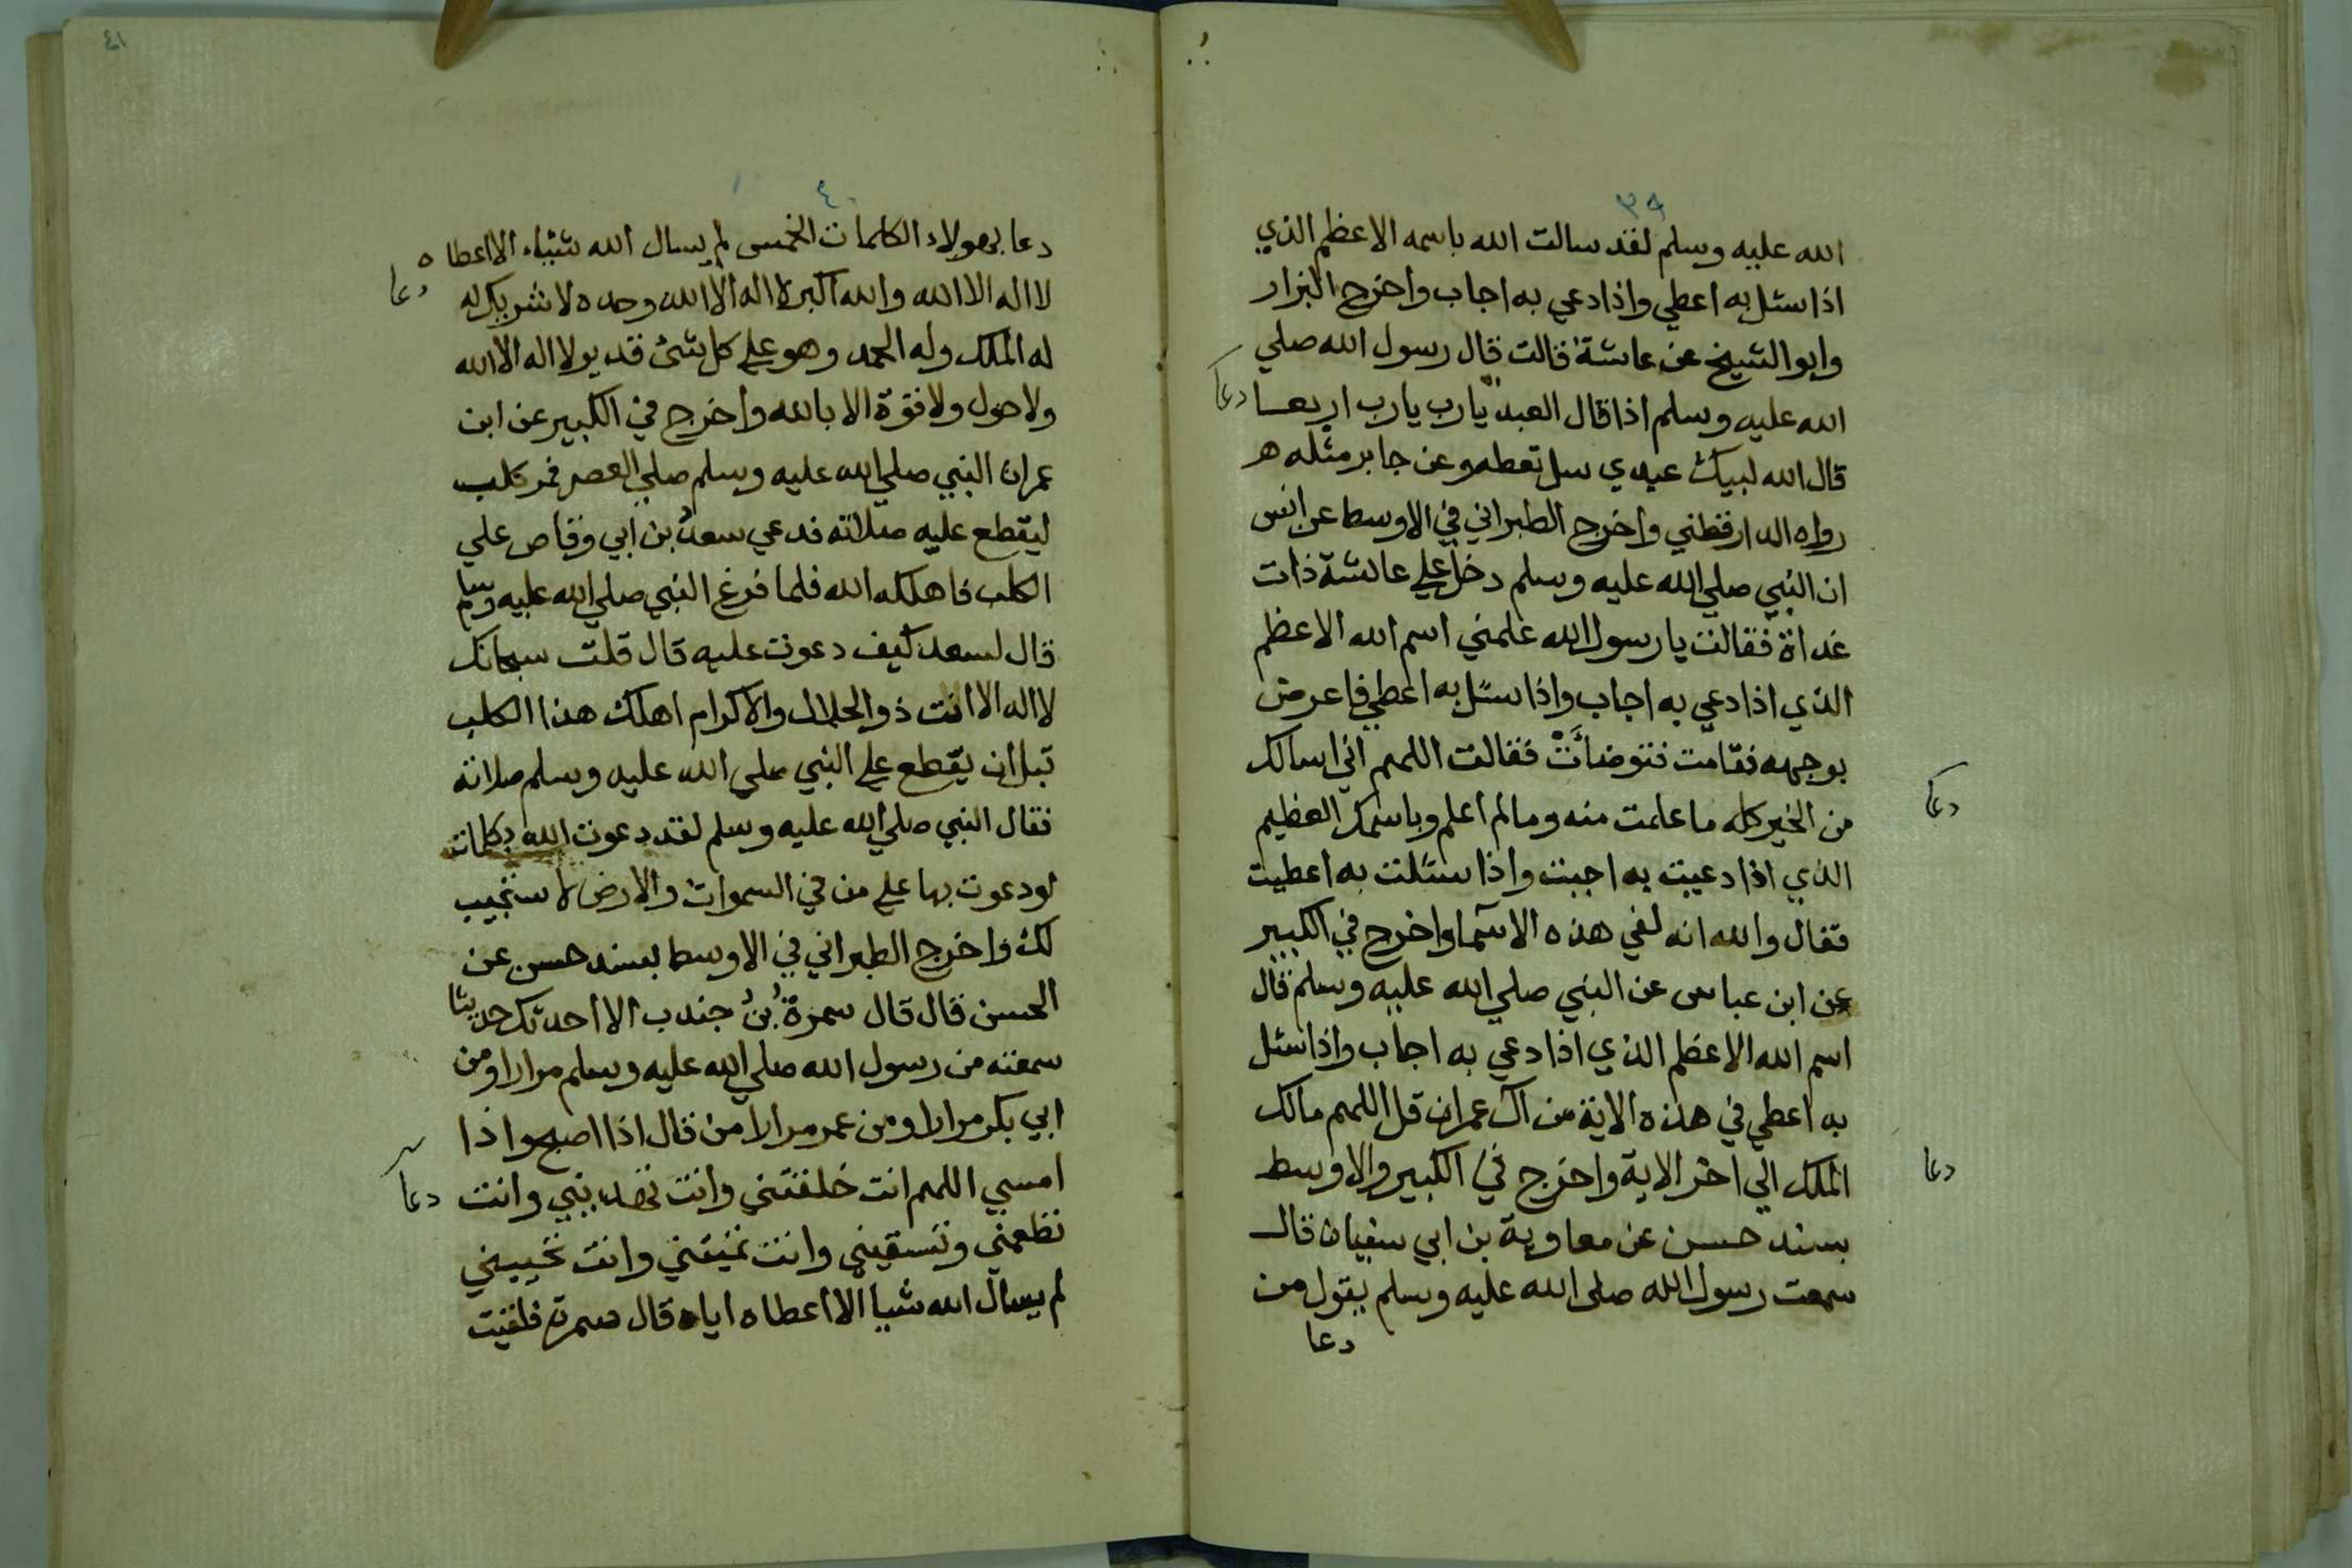 ٣٩
الله عليه وسلم لقد سالت الله باسمه الاعظم الذي
اذا سئل به اعطي واذا دعي به اجاب واخرج البزار
وابو الشيخ عن عائشة قالت قال رسول الله صلي
الله عليه وسلم اذا قال العبد يا رب يا رب اربعا
دعا
قال الله لبيك عبدي سل تعطه وعن جابر مثله ه
رواه الدارقطني واخرج الطبراني في الاوسط عن انس
ان النبي صلي الله عليه وسلم دخل علي عائشة ذات
غداة فقالت يا رسول الله علمني اسم الله الاعظم
الذي اذا دعي به اجاب واذا سئل به اعطي فاعرض
بوجهه فقامت فتوضأت فقالت اللهم اني اسالك
من الخير كله ما علمت منه وما لم اعلم وباسمك العظيم
دعا
الذي اذا دعيت به اجبت واذا سئلت به اعطيت
فقال والله انه لفي هذه الاسما واخرج في الكبير
عن ابن عباس عن النبي صلي الله عليه وسلم قال
اسم الله الاعظم الذي اذا دعي به اجاب واذا سئل
به اعطي في هذه الاية من ال عمران قل اللهم مالك
الملك الي اخر الاية واخرج في الكبير والاوسط
دعا
بسند حسن عن معاوية بن ابي سفيان قال
سمعت رسول الله صلي الله عليه وسلم يقول من
دعا
٤١
٤٠
دعا بهولاء الكلمات الخمس لم يسال الله شيئاء الا اعطاه
لا اله الا الله والله اكبر لا اله الا الله وحده لا شريك له
دعا
له الملك وله الحمد وهو علي كل شئ قدير لا اله الا الله
ولا حول ولا قوة الا بالله واخرج في الكبير عن ابن
عمر ان النبي صلي الله عليه وسلم صلي العصر فمر كلب
ليقطع عليه صلاته فدعي سعد بن ابي وقاص علي
الكلب فاهلكه الله فلما فرغ النبي صلي الله عليه وسلم
قال لسعد كيف دعوت عليه قال قلت سبحانك
لا اله الا انت ذو الجلال والاكرام اهلك هذا الكلب
قبل ان يقطع علي النبي صلي الله عليه وسلم صلاته
فقال النبي صلي الله عليه وسلم لقد دعوت الله بكلمات
لو دعوت بها علي من في السموات والارض لاستجيب
لك واخرج الطبراني في الاوسط بسند حسن عن
الحسن قال قال سمرة بن جندب الا احدثك حديثا
سمعته من رسول الله صلي الله عليه وسلم مرارا ومن
ابي بكر مرارا ومن عمر مرارا من قال اذا اصبح واذا
امسي اللهم انت خلقتني وانت تهديني وانت
دعا
تطعمني وتسقيني وانت تميتني وانت تحييني
لم يسال الله شيا الا اعطاه اياه قال سمرة فلقيت